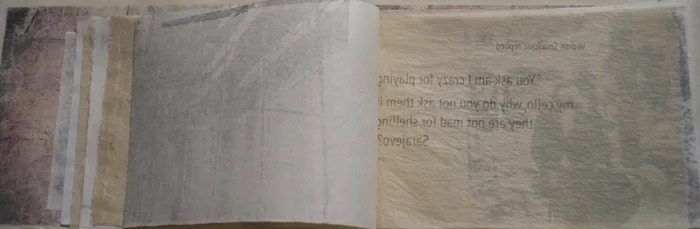 Vedran Smailović replied
'You ask am I crazy for playing
my cello, why do you not ask them if
they are not mad for shelling
Sarajevo?